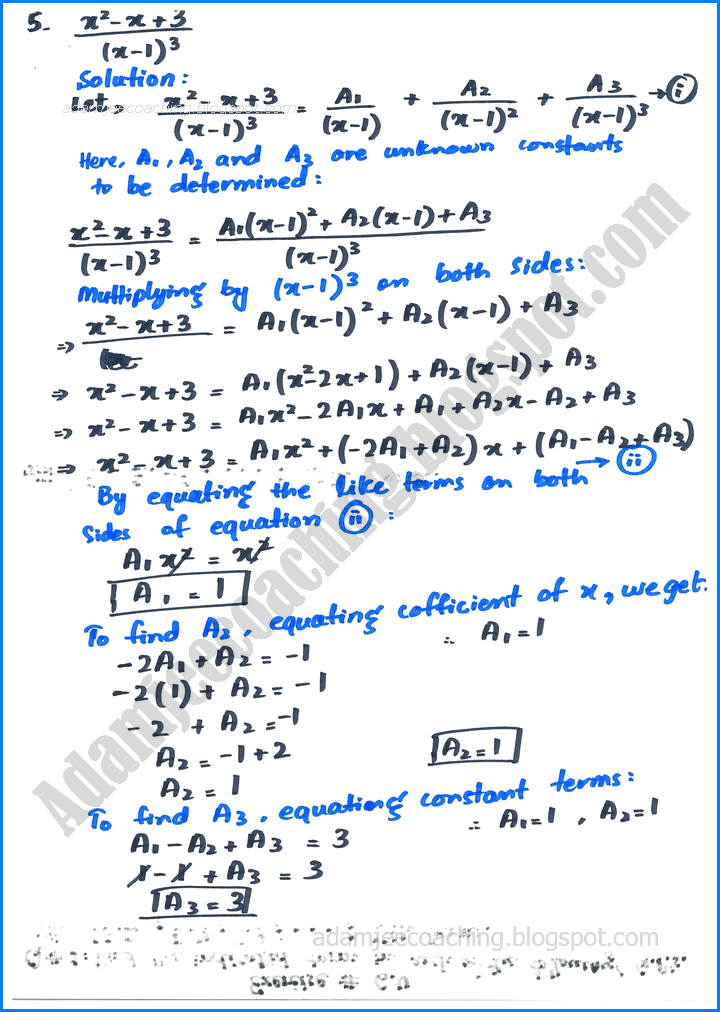 5. x²-x+3 / (x-1)³
Solution:
adamjeecoaching.blogspot.com
Let x²-x+3 / (x-1)³ = A₁/(x-1) + A₂/(x-1)² + A₃/(x-1)³ → (i)
Here, A₁, A₂ and A₃ are unknown constants
to be determined:
x²-x+3 / (x-1)³ = A₁(x-1)² + A₂(x-1) + A₃ / (x-1)³
Multiplying by (x-1)³ on both sides:
⇒ x²-x+3 = A₁(x-1)² + A₂(x-1) + A₃
⇒ x²-x+3 = A₁(x²-2x+1) + A₂(x-1) + A₃
⇒ x²-x+3 = A₁x²-2A₁x + A₁ + A₂x - A₂ + A₃
⇒ x²-x+3 = A₁x² + (-2A₁+A₂)x + (A₁-A₂+A₃)
→ (ii)
By equating the like terms on both
sides of equation (ii):
A₁x² = x²
A₁ = 1
To find A₂, equating cofficient of x, we get.
-2A₁ + A₂ = -1 ∴ A₁ = 1
-2(1) + A₂ = -1
-2 + A₂ = -1
A₂ = -1+2 A₂ = 1
A₂ = 1
To find A₃, equating constant terms:
A₁ - A₂ + A₃ = 3 ∴ A₁=1, A₂=1
1 - 1 + A₃ = 3
A₃ = 3
Adamjeecoaching.blogspot.com
adamjeecoaching.blogspot.com